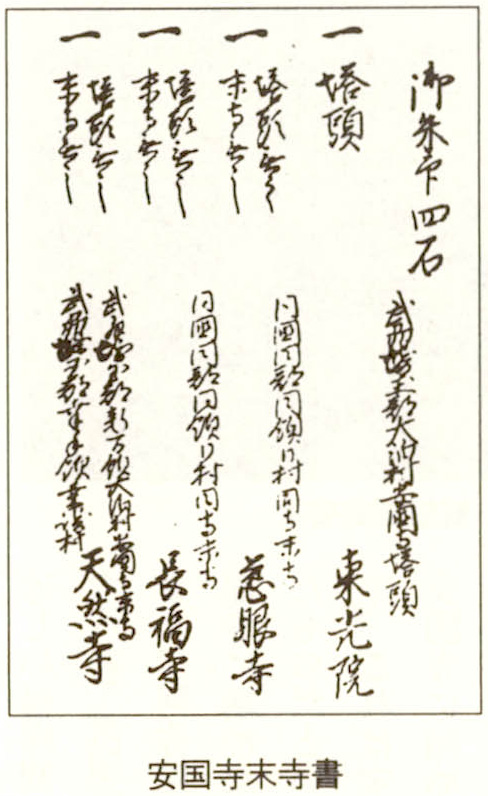 御朱印四石
武州埼玉郡大泊村安国寺塔頭
一 塔頭 東光院
一 塔頭無之
末寺無之
同国同郡同領同村同寺末寺
慈眼寺
一 塔頭無之
末寺無之
同国同郡同領同村同寺末寺
長福寺
一 塔頭無之
末寺無之
武州埼玉郡新方領大泊村安国寺末寺
武州埼玉郡 領 村
天然寺
安国寺末寺書